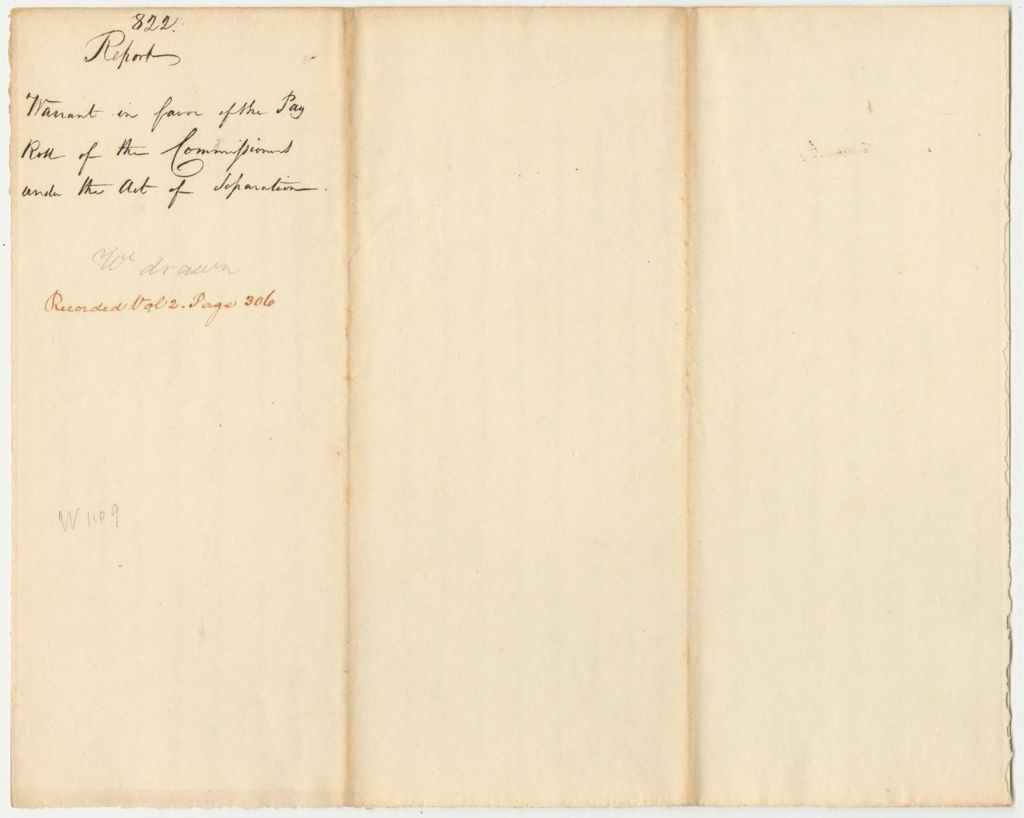 822.
Report
Warrant in favor of the Pay
Roll of the Commissioners
under the Act of Separation.
Wt drawn
Recorded Vol 2. Page 306
W 1109